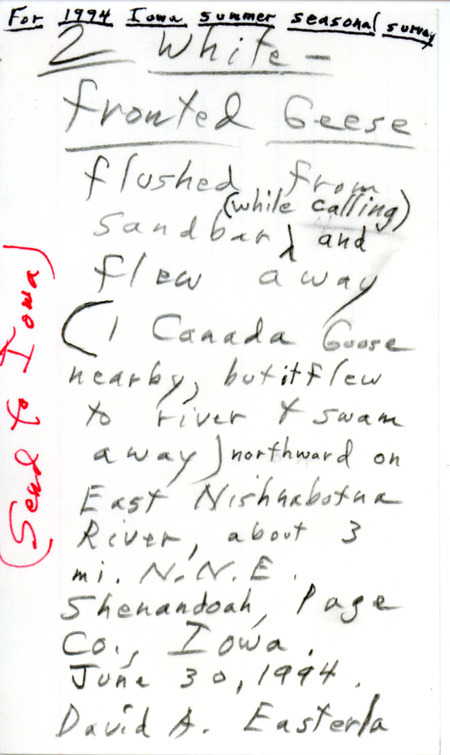 For 1994 Iowa summer seasonal survey
2 White-
fronted Geese
flushed from
(while calling)
sandbar, and
flew away
(1 Canada Goose
nearby, but it flew
to river & swam
away) northward on
East Nishnabotna
River, about 3
mi. N.N.E.
Shenandoah, Page
Co., Iowa.
June 30, 1994.
David A. Easterla
(Send to Iowa)